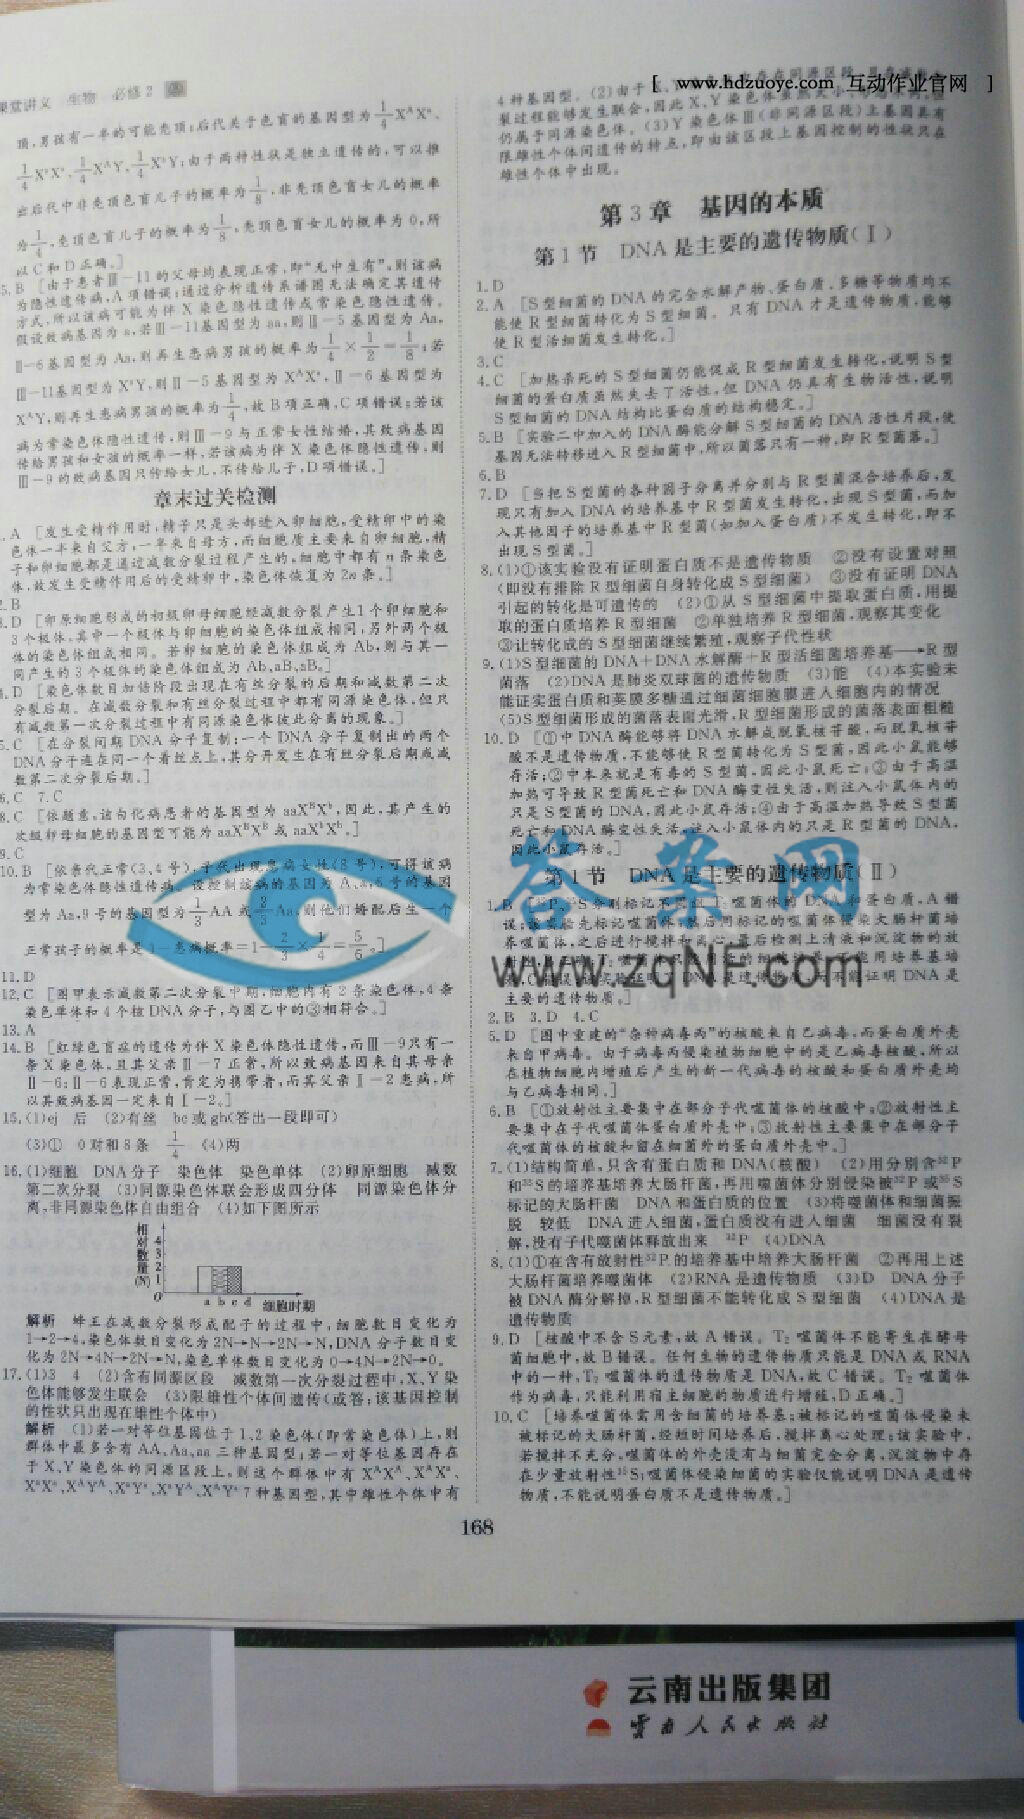 课堂讲义 生物 必修2
[ www.hdzuoye.com 互动作业官网 ]
项,男孩有一半的可能秃顶;后代关于色盲的基因型为
由于两种性状是独立遗传的,可以推
出后代中非秃顶色盲儿子的概率为1/8,非秃顶色盲女儿的概率
为1/4,秃顶色盲儿子的概率为1/8,秃顶色盲女儿的概率为0,所
以C和D正确。]
5.B [由于患者Ⅲ-11的父母均表现正常,即“无中生有”,则该病
为隐性遗传病,A项错误;通过分析遗传系谱图无法确定其遗传
方式,所以该病可能为伴X染色隐性遗传或常染色隐性遗传。
假设致病基因为a,若Ⅲ-11基因型为aa,则Ⅱ-5基因型为Aa,
Ⅱ-6基因型为Aa,则再生患病男孩的概率为1/4×1/2=1/8;若
Ⅲ-11基因型为XᵃY,则Ⅱ-5基因型为XᴬXᵃ,Ⅱ-6基因型为
XᴬY,则再生患病男孩的概率为1/4,故B项正确,C项错误;若该
病为常染色体隐性遗传,则Ⅲ-9与正常女性结婚,其致病基因
传给男孩和女孩的概率一样,若该病为伴X染色体隐性遗传,则
Ⅲ-9的致病基因只传给女儿,不传给儿子,D项错误。]
章末过关检测
1.A [发生受精作用时,精子只是头部进入卵细胞,受精卵中的染
色体一半来自父方,一半来自母方,而细胞质主要来自卵细胞,精
子和卵细胞都是通过减数分裂过程产生的,细胞中都有n条染色
体,故发生受精作用后的受精卵中,染色体恢复为2n条。]
2.B
3.D [卵原细胞形成的初级卵母细胞经减数分裂产生1个卵细胞和
3个极体,其中一个极体与卵细胞的染色体组成相同,另外两个极
体的染色体组成相同。若卵细胞的染色体组成为Ab,则与其一
同产生的3个极体的染色体组成为Ab,aB,aB。]
4.D [染色体数目加倍阶段出现在有丝分裂的后期和减数第二次
分裂后期。在减数分裂和有丝分裂过程中都有同源染色体,但只
有减数第一次分裂过程中有同源染色体彼此分离的现象。]
5.C [在分裂间期DNA分子复制;一个DNA分子复制出的两个
DNA分子连在同一个着丝点上,其分开发生在有丝分裂后期或减
数第二次分裂后期。]
6.C 7.C
8.C [依题意,该白化病患者的基因型为aaXᴮXᵇ,因此,其产生的
次级卵母细胞的基因型可能为aaXᴮXᴮ或aaXᵇXᵇ。]
9.C
10.B [依亲代正常(3、4号),子代出现患病女性(8号),可得该病
为常染色体隐性遗传病。设控制该病的基因为A、a,6号的基因
型为Aa,9号的基因型为1/3AA或2/3Aa,则他们婚配后生一个
正常孩子的概率是1-患病概率=1-2/3×1/4=5/6。]
11.D
12.C [图甲表示减数第二次分裂中期,细胞内有2条染色体,4条
染色单体和4个核DNA分子,与图乙中的③相符合。]
13.A
14.B [红绿色盲症的遗传为伴X染色体隐性遗传,而Ⅲ-9只有一
条X染色体,且其父亲Ⅱ-7正常,所以致病基因来自其母亲
Ⅱ-6;Ⅱ-6表现正常,肯定为携带者,而其父亲Ⅰ-2患病,所
以其致病基因一定来自Ⅰ-2。]
15.(1)ej 后 (2)有丝 bc或gh(答出一段即可)
(3)① 0对和8条 1/4 (4)两
16.(1)细胞 DNA分子 染色体 染色单体 (2)卵原细胞 减数
第二次分裂 (3)同源染色体联会形成四分体 同源染色体分
离,非同源染色体自由组合 (4)如下图所示
相对数量(N)
4
3
2
1
O
a b c d 细胞时期
解析 蜂王在减数分裂形成配子的过程中,细胞数目变化为
1→2→4,染色体数目变化为2N→N→2N→N,DNA分子数目变
化为2N→4N→2N→N,染色单体数目变化为0→4N→2N→0。
17.(1)3 4 (2)含有同源区段 减数第一次分裂过程中,X、Y染
色体能够发生联会 (3)限雄性个体间遗传(或答:该基因控制
的性状只出现在雄性个体中)
解析 (1)若一对等位基因位于1、2染色体(即常染色体)上,则
群体中最多含有AA、Aa、aa三种基因型;若一对等位基因存在
于X、Y染色体的同源区段上,则这个群体中有XᴬXᴬ、XᴬXᵃ、
XᵃXᵃ、XᴬYᴬ、XᵃYᵃ、XᵃYᴬ、XᴬYᵃ7种基因型,其中雄性个体中有
4种基因型。(2)由于
裂过程能够发生联会,因此X、Y染色体
仍属于同源染色体。(3)Y染色体Ⅲ(非同源区段)上基因具有
限雄性个体间遗传的特点,即由该区段上基因控制的性状只在
雄性个体中出现。
第3章 基因的本质
第1节 DNA是主要的遗传物质(Ⅰ)
1.D
2.A [S型细菌的DNA的完全水解产物、蛋白质、多糖等物质均不
能使R型细菌转化为S型细菌。只有DNA才是遗传物质,能够
使R型活细菌发生转化。]
3.C
4.C [加热杀死的S型细菌仍能促成R型细菌发生转化,说明S型
细菌的蛋白质虽然失去了活性,但DNA仍具有生物活性,说明
S型细菌的DNA结构比蛋白质的结构稳定。]
5.B [实验二中加入的DNA酶能分解S型细菌的DNA活性片段,使
基因无法转移进入R型细菌中,所以菌落只有一种,即R型菌落。]
6.B
7.D [当把S型菌的各种因子分离并分别与R型菌混合培养后,发
现只有加入DNA的培养基中R型菌发生转化,出现S型菌,而加
入其他因子的培养基中R型菌(如加入蛋白质)不发生转化,即不
出现S型菌。]
8.(1)①该实验没有证明蛋白质不是遗传物质 ②没有设置对照
(即没有排除R型细菌自身转化成S型细菌) ③没有证明DNA
引起的转化是可遗传的 (2)①从S型细菌中提取蛋白质,用提
取的蛋白质培养R型细菌 ②单独培养R型细菌,观察其变化
③让转化成的S型细菌继续繁殖,观察子代性状
9.(1)S型细菌的DNA+DNA水解酶+R型活细菌培养基→R型
菌落 (2)DNA是肺炎双球菌的遗传物质 (3)能 (4)本实验未
能证实蛋白质和荚膜多糖通过细菌细胞膜进入细胞内的情况
(5)S型细菌形成的菌落表面光滑,R型细菌形成的菌落表面粗糙
10.D [①中DNA酶能够将DNA水解成脱氧核苷酸,而脱氧核苷
酸不是遗传物质,不能够使R型菌转化为S型菌,因此小鼠能够
存活;②中本来就是有毒的S型菌,因此小鼠死亡;③由于高温
加热可导致R型菌死亡和DNA酶变性失活,则注入小鼠体内的
只是S型菌的DNA,因此小鼠存活;④由于高温加热导致S型菌
死亡和DNA酶变性失活,注入小鼠体内的只是R型菌的DNA,
因此小鼠存活。]
第1节 DNA是主要的遗传物质(Ⅱ)
1.B [³²P、³⁵S分别标记不同组T₂噬菌体的DNA和蛋白质,A错
误;该实验先标记噬菌体,然后用标记的噬菌体侵染大肠杆菌培
养噬菌体,之后进行搅拌和离心,最后检测上清液和沉淀物的放
DNA是遗传物质,而不能证明DNA是
主要的遗传物质。]
2.B 3.D 4.C
5.D [图中重建的“杂种病毒丙”的核酸来自乙病毒,而蛋白质外壳
来自甲病毒。由于病毒丙侵染植物细胞中的是乙病毒核酸,所以
在植物细胞内增殖后产生的新一代病毒的核酸和蛋白质外壳均
与乙病毒相同。]
6.B [①放射性主要集中在部分子代噬菌体的核酸中;②放射性主
要集中在子代噬菌体蛋白质外壳中;③放射性主要集中在部分子
代噬菌体的核酸和留在细菌外的蛋白质外壳中。]
7.(1)结构简单,只含有蛋白质和DNA(核酸) (2)用分别含³²P
和³⁵S的培养基培养大肠杆菌,再用噬菌体分别侵染被³²P或³⁵S
标记的大肠杆菌 DNA和蛋白质的位置 (3)将噬菌体和细菌振
脱 较低 DNA进入细菌,蛋白质没有进入细菌 细菌没有裂
解,没有子代噬菌体释放出来 ³²P (4)DNA
8.(1)①在含有放射性³²P的培养基中培养大肠杆菌 ②再用上述
大肠杆菌培养噬菌体 (2)RNA是遗传物质 (3)D DNA分子
被DNA酶分解掉,R型细菌不能转化成S型细菌 (4)DNA是
遗传物质
9.D [核酸中不含S元素,故A错误。T₂噬菌体不能寄生在酵母
菌细胞中,故B错误。任何生物的遗传物质只能是DNA或RNA
中的一种,T₂噬菌体的遗传物质是DNA,故C错误。T₂噬菌体
作为病毒,只能利用宿主细胞的物质进行增殖,D正确。]
10.C [培养噬菌体需用含细菌的培养基;被标记的噬菌体侵染未
被标记的大肠杆菌,经短时间培养后,搅拌离心处理;该实验中,
若搅拌不充分,噬菌体的外壳没有与细菌完全分离,沉淀物中存
在少量放射性³⁵S;噬菌体侵染细菌的实验仅能说明DNA是遗传
物质,不能说明蛋白质不是遗传物质。]
答案网
www.zqnf.com
168
云南出版集团
云南人民出版社